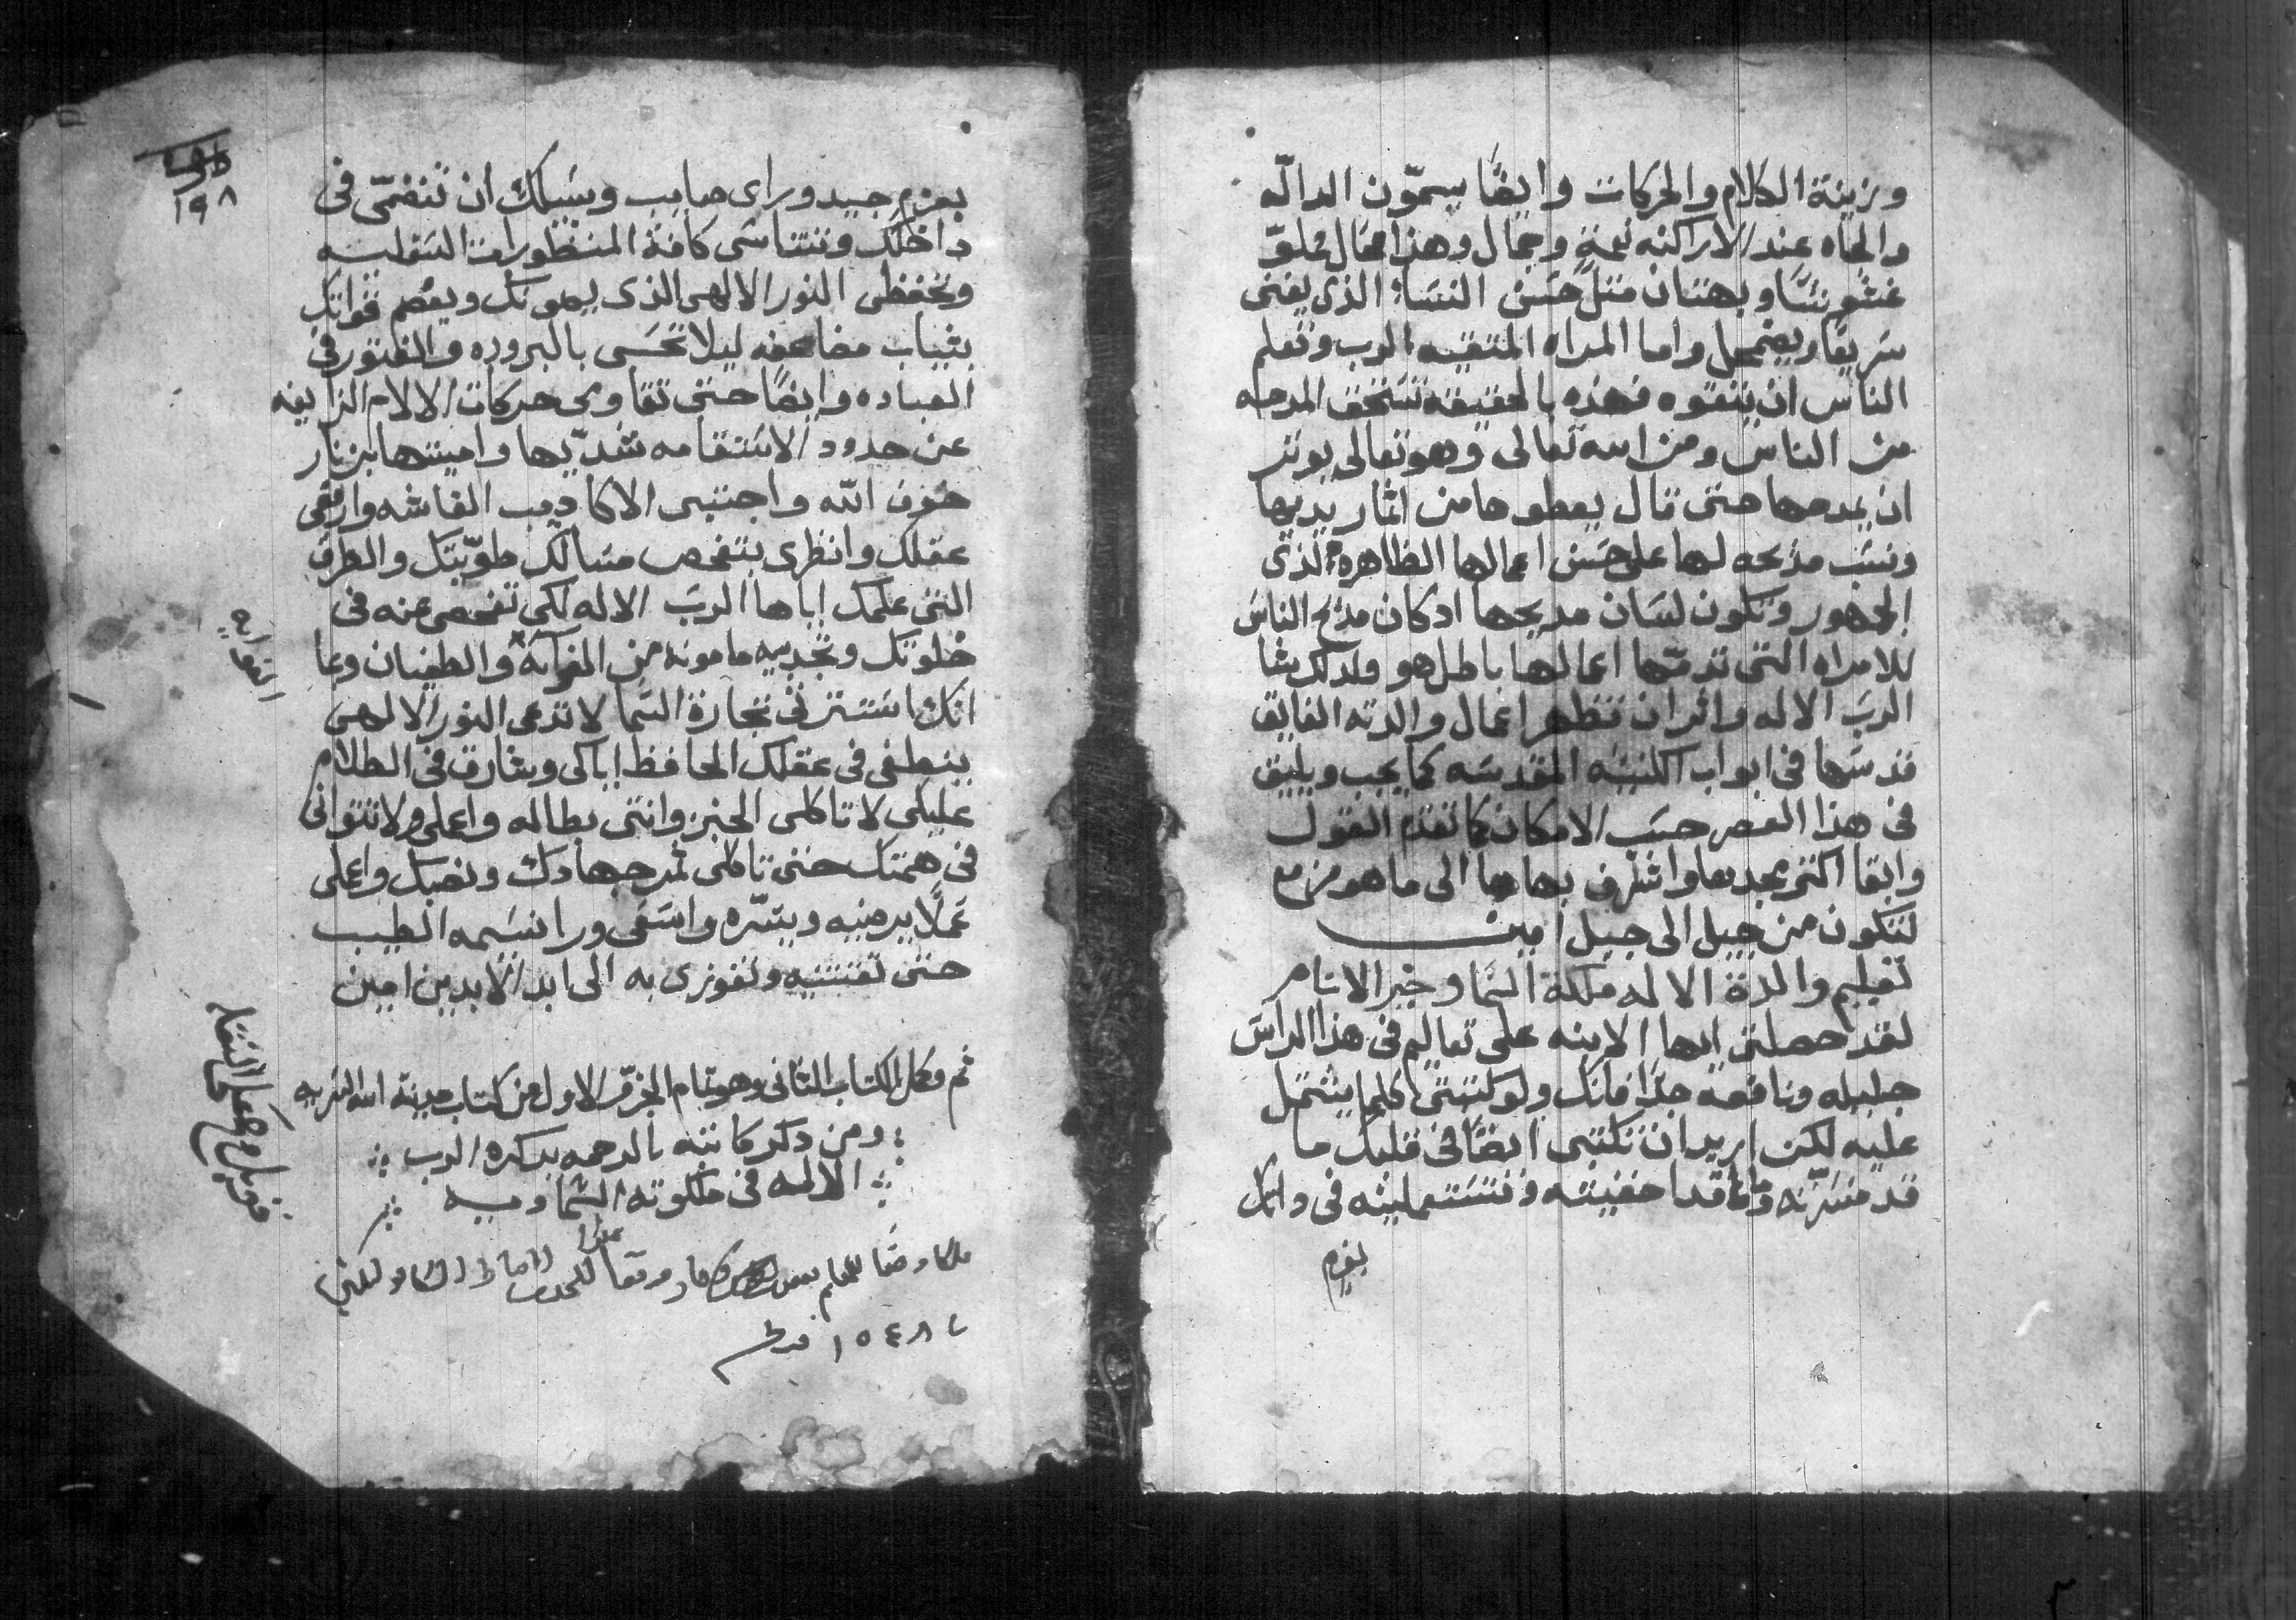 وزينة الكلام والحركات وايضًا يسمّون الدالّه
والجاه عند الاراكنه نعمةٍ وجمال وهذا جمال مملوّ
غشًّا وبهتان مثل حسن النسا الذى يفنى
سريعًا ويضمحل واما المراه المتقيه الرب وتعلم
الناس ان يتقوه فهذه بالحقيقه تستحق المدحه
من الناس ومن الله تعالى وهو تعالى يوثر
ان يمدحها حتى قال يعطوها من اثمار يديها
ونسب مديحه لها على حسن اعمالها الظاهرة لذى
الجمهور وتكون لسان مديحها اد كان مديح الناس
للامراه التى تدمّها اعمالها باطل هو ولدلك يشا
الربّ الاله واثر ان تظهر اعمال والدته الفايق
قدسها فى ابواب الكنيسه المقدسه كما يجب ويليق
فى هذا العصر حسب الامكان كما تقدم القول
وابقا اكثر مجدها واشرف بهاها الى ما هو مزمع
لتكون من جيل الى جيل امين
تعليم والدة الاله ملكة السما وخير الانام
لقد حصلتى ايها الابنه على تعاليم فى هذا الراس
جليله ونافعه جدًا فانك ولو كتبتى كلما يشتمل
عليه لكن اريد ان تكتبى ايضًا فى قلبك ما
قد فسرته وما قد اخفيته وتستعمليه فى داتك
بعزم
١٩٨
بعزمٍ جيد وراى صايب وسبيلك ان تنضمّى فى
داخلك وتتناسى كافة المنظورات السفليه
وتحفظى النور الالهى الذى يصونك ويعصم قواتك
بثياب مضاعفه ليلا تحسى بالبروده والفتور فى
العباده وايضًا حتى تقاومى حركات الالام الزايغه
عن حدود الاستقامه شدّيها واميتها بزنار
خوف الله واجتنبى الاكاديب الغاشه وارفعى
عقلك وانظرى بتفحص مسالك طويّتك والطرق
التى علمك اياها الربّ الاله لكى تفحصى عنه فى
خلوتك وتجديه مامونه من الغوايه والطغيان وبما
انك استترتى تجارة السما لا تدعى النور الالهى
ينطفى فى عقلك المحافظ اياكى وشارق فى الظلام
عليكى لا تاكلى الخبز وانتى بطاله واعملى ولا تتوانى
فى همتك حتى تاكلى ثمر جهادك وتعبك واعملى
عملًا يرضيه ويسّره واسعى ورا نسيمه الطيب
حتى تقتنيه وتفوزى به الى ابد الابدين امين
الغوايه
تم وكمل الكتاب التانى وهو تمام الجزؤ الاول من كتاب مدينة الله السريه
ومن دكر كاتبه بالرحمه يدكره الرب
الاله فى ملكوته السماويه
قوبل وصحح على النقل
١٥٤٨